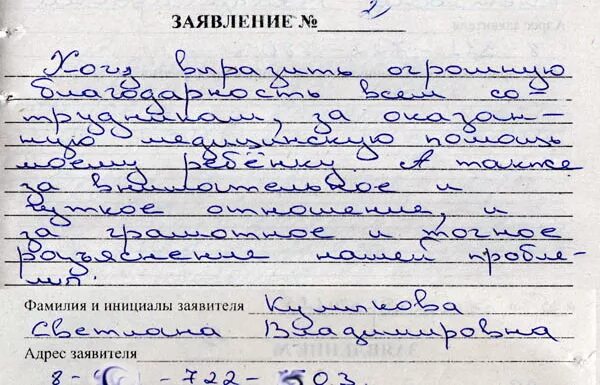 ЗАЯВЛЕНИЕ № 2
Хочу выразить огромную
благодарность всем со-
трудникам, за оказан-
ную медицинскую помощь
моему ребёнку. А также
за внимательное и
чуткое отношение, и
за грамотное и точное
разъяснение нашей пробле-
мы.
Фамилия и инициалы заявителя Куликова
Светлана Владимировна
Адрес заявителя
8- -722- 503.